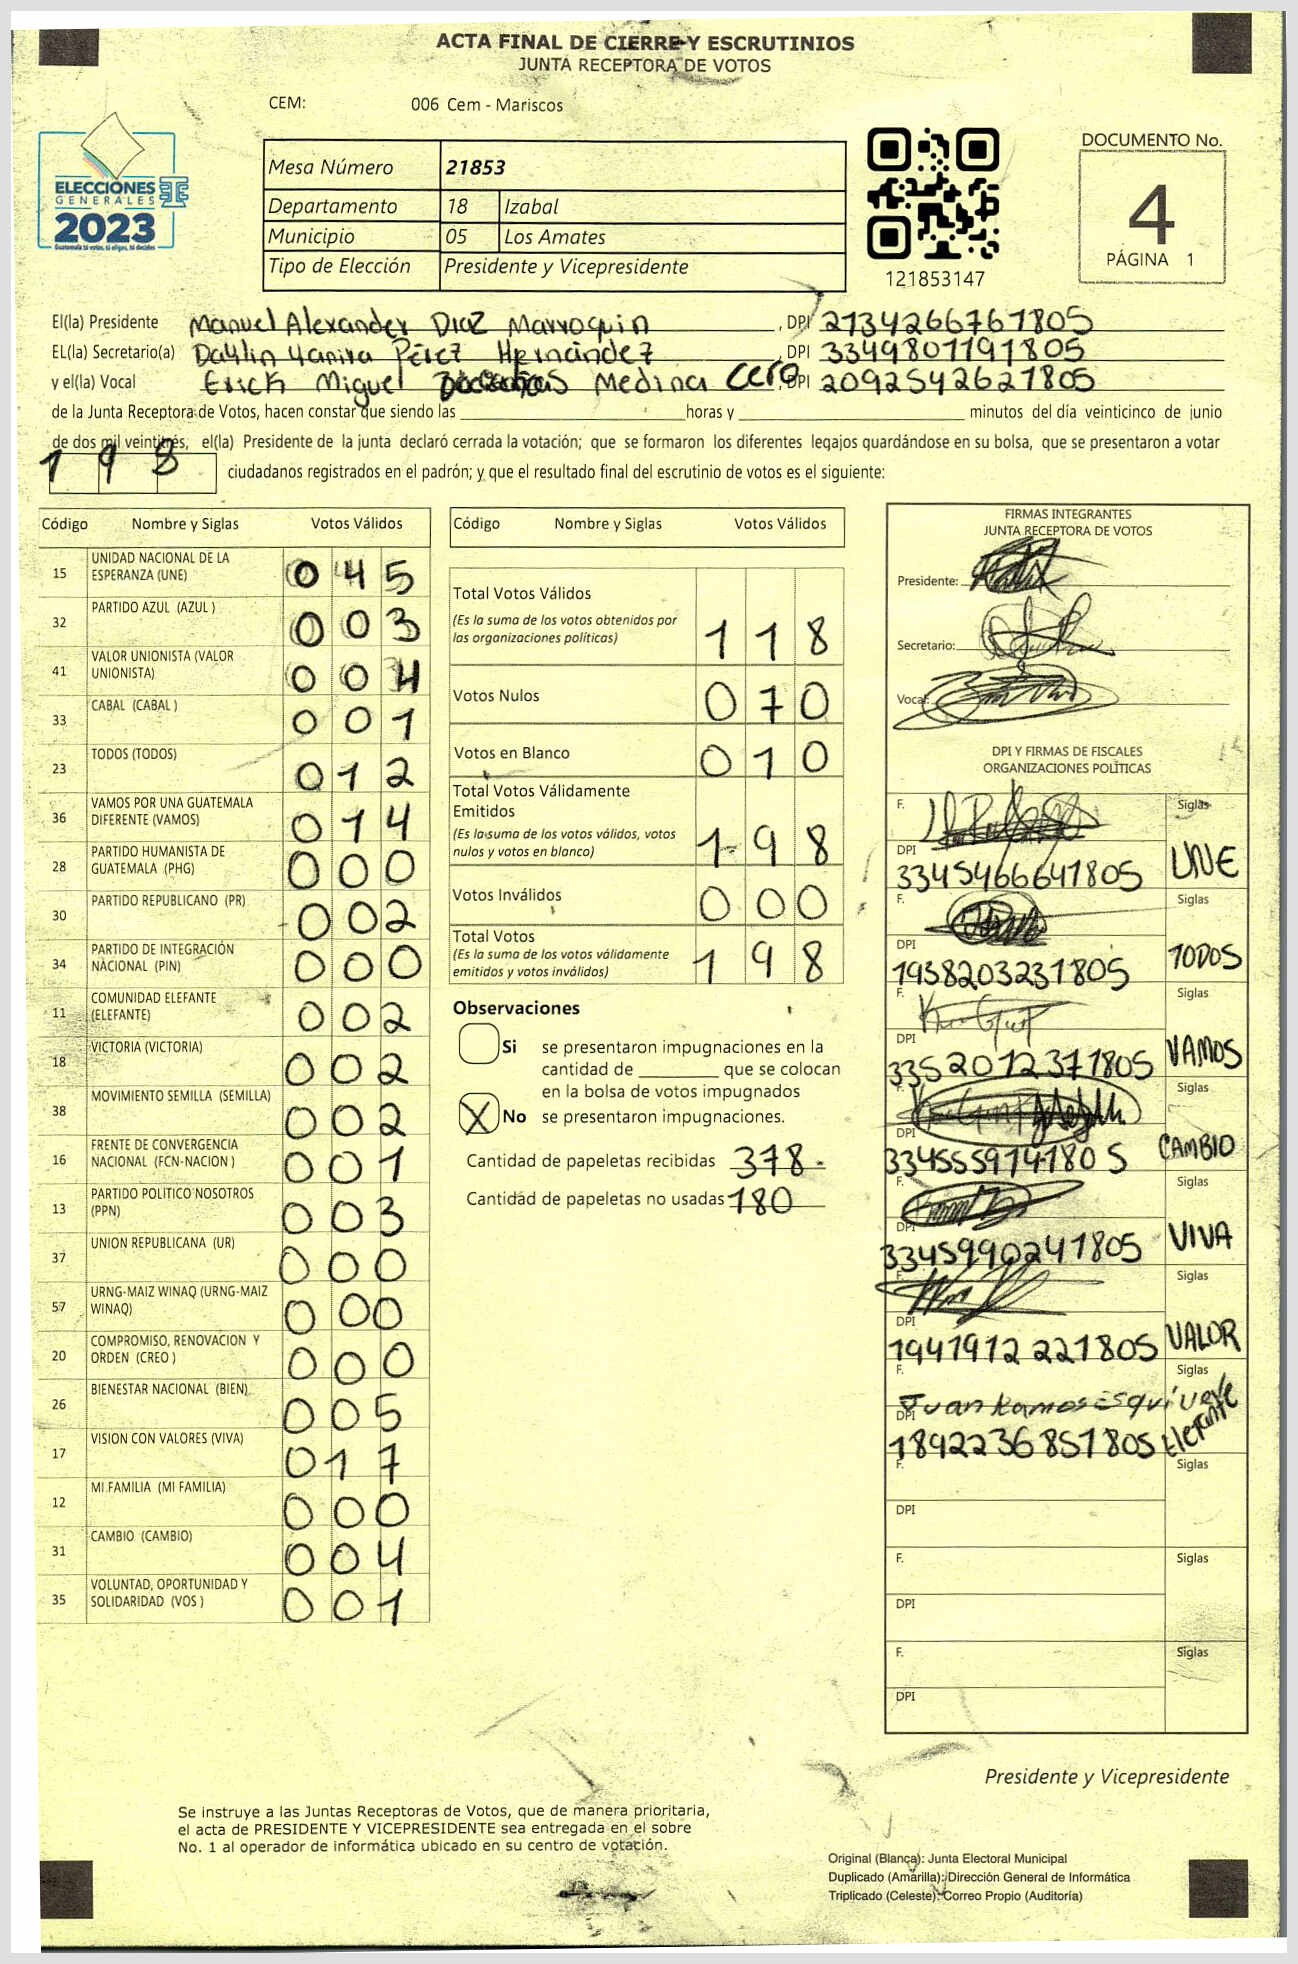 ACTA FINAL DE CIERRE Y ESCRUTINIOS
JUNTA RECEPTORA DE VOTOS
CEM: 006 Cem - Mariscos
ELECCIONES
GENERALES
2023
Guatemala tú votas, tú eliges, tú decides
Mesa Número 21853
Departamento 18 Izabal
Municipio 05 Los Amates
Tipo de Elección Presidente y Vicepresidente
121853147
DOCUMENTO No.
4
PÁGINA 1
El(la) Presidente Manuel Alexander Diaz Marroquin, DPI 2134266761805
EL(la) Secretario(a) Dahlin Yanira Pérez Hernández, DPI 3349801191805
y el(la) Vocal Erick Miguel Medina Cero, DPI 2092542621805
de la Junta Receptora de Votos, hacen constar que siendo las horas y minutos del día veinticinco de junio
de dos mil veintitrés, el(la) Presidente de la junta declaró cerrada la votación; que se formaron los diferentes legajos quardándose en su bolsa, que se presentaron a votar
198 ciudadanos registrados en el padrón; y que el resultado final del escrutinio de votos es el siguiente:
Código Nombre y Siglas Votos Válidos
15 UNIDAD NACIONAL DE LA ESPERANZA (UNE) 045
32 PARTIDO AZUL (AZUL ) 003
41 VALOR UNIONISTA (VALOR UNIONISTA) 004
33 CABAL (CABAL ) 001
23 TODOS (TODOS) 012
36 VAMOS POR UNA GUATEMALA DIFERENTE (VAMOS) 014
28 PARTIDO HUMANISTA DE GUATEMALA (PHG) 000
30 PARTIDO REPUBLICANO (PR) 002
34 PARTIDO DE INTEGRACIÓN NACIONAL (PIN) 000
11 COMUNIDAD ELEFANTE (ELEFANTE) 002
18 VICTORIA (VICTORIA) 002
38 MOVIMIENTO SEMILLA (SEMILLA) 002
16 FRENTE DE CONVERGENCIA NACIONAL (FCN-NACION ) 001
13 PARTIDO POLITICO NOSOTROS (PPN) 003
37 UNION REPUBLICANA (UR) 000
57 URNG-MAIZ WINAQ (URNG-MAIZ WINAQ) 000
20 COMPROMISO, RENOVACION Y ORDEN (CREO ) 000
26 BIENESTAR NACIONAL (BIEN) 005
17 VISION CON VALORES (VIVA) 017
12 MI FAMILIA (MI FAMILIA) 000
31 CAMBIO (CAMBIO) 004
35 VOLUNTAD, OPORTUNIDAD Y SOLIDARIDAD (VOS ) 001
Código Nombre y Siglas Votos Válidos
Total Votos Válidos
(Es la suma de los votos obtenidos por
las organizaciones políticas) 118
Votos Nulos 070
Votos en Blanco 010
Total Votos Válidamente
Emitidos
(Es la suma de los votos válidos, votos
nulos y votos en blanco) 198
Votos Inválidos 000
Total Votos
(Es la suma de los votos válidamente
emitidos y votos inválidos) 198
Observaciones
Si se presentaron impugnaciones en la
cantidad de que se colocan
en la bolsa de votos impugnados
X No se presentaron impugnaciones.
Cantidad de papeletas recibidas 378.
Cantidad de papeletas no usadas 180
FIRMAS INTEGRANTES
JUNTA RECEPTORA DE VOTOS
Presidente:
Secretario:
Vocal:
DPI Y FIRMAS DE FISCALES
ORGANIZACIONES POLÍTICAS
F. Siglas
DPI 3345466641805 UNE
F. Siglas
DPI 1938203231805 TODOS
F. Siglas
DPI 3352012371805 VAMOS
F. Siglas
DPI 3345559141805 CAMBIO
F. Siglas
DPI 3345990241805 VIVA
F. Siglas
DPI 1941912221805 VALOR
F. Juan Ramos Esquivel Siglas
DPI 1892236851805 Elefante
F. Siglas
DPI
F. Siglas
DPI
F. Siglas
DPI
Presidente y Vicepresidente
Se instruye a las Juntas Receptoras de Votos, que de manera prioritaria,
el acta de PRESIDENTE Y VICEPRESIDENTE sea entregada en el sobre
No. 1 al operador de informática ubicado en su centro de votación.
Original (Blanca): Junta Electoral Municipal
Duplicado (Amarilla): Dirección General de Informática
Triplicado (Celeste): Correo Propio (Auditoría)